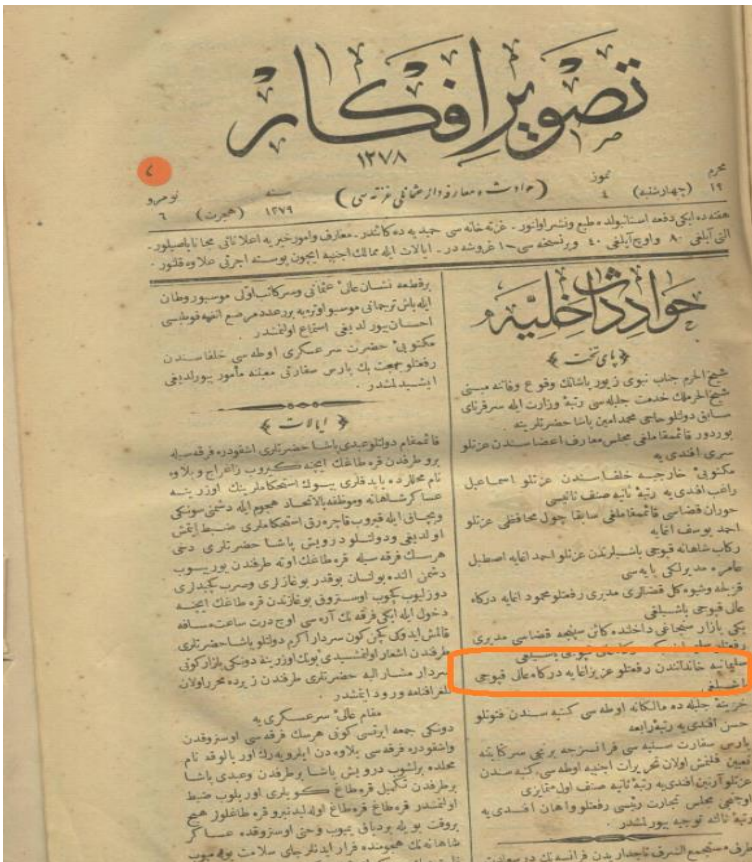 تصویر افكار
١٢٧٨
محرم
١٢
(چهارشنبه)
تموز
٤
(حوادث و معارفه دائر عثمانلی غزته سی)
سنه
١٢٧٩
(هجرت)
نومرو
٦
٧
هفته ده ایكی دفعه استانبولده طبع ونشر اولنور . غزته خانه سی جدیه ده كائندر . معارف وامور خیریه اعلاناتی مجانا باصیلور .
التی آیلغی ٨٠ واوچ آیلغی ٤٠ وبر نسخه سی ١٠ غروشه در . ایالات ایله ممالك اجنبیه ایچون پوسته اجرتی علاوه قلنور .
حوادث داخلیه
﴿ پای تخت ﴾
شیخ الحرم جناب نبوی زیور پاشانك وقوع وفاتنه مبنی
شیخ الحرملك خدمت جلیله سی رتبهٔ وزارت ایله سرقرنای
سابق دولتلو حاجی محمد امین پاشا حضرتلرینه
بوردور قائمقاملغی مجلس معارف اعضاسندن عزتلو
سری افندی یه
مكتوبئ خارجیه خلفاسندن عزتلو اسماعیل
راغب افندی یه رتبهٔ ثانیه صنف ثانیسی
حوران قضاسی قائمقاملغی سابقا چول محافظی عزتلو
احمد یوسف اغایه
ركاب شاهانه قپوجی باشیلرندن عزتلو احمد اغایه اصطبل
عامره مدیرلكی پایه سی
مدیری رفعتلو محمود اغایه دركاه
عالی قپوجی باشیلغی
یكی بازار سنجاغی داخلنده كائن قضاسی مدیری
سلیمانیه خاندانندن رفعتلو عزیز اغایه دركاه عالی قپوجی
باشیلغی
خزینهٔ جلیله ده مالكانه اوطه سی كتبه سندن فتوتلو
حسن افندی یه رتبهٔ رابعه
پارس سفارت سنیه سی فرانسزجه برنجی سركتابتنه
تعیین قلنمش اولان تحریرات اجنبیه اوطه سی كتبه سندن
عزتلو افندی یه رتبهٔ ثانیه صنف اول متمایزی
مجلس تجارت رئیسی رفعتلو واهان افندی یه
رتبهٔ ثالثه توجیه بیورلمشدر .
برقطعه نشان عالئ عثمانی وسركاتب اول موسیو
ایله باش ترجمانی موسیو اوتره یه بررعدد مرصع انفیه قوطیسی
احسان بیورلدیغی استماع اولنمشدر .
مكتوبئ حضرت سرعسكری اوطه سی خلفاسندن
رفعتلو بك پارس سفارتی معیتنه مأمور بیورلدیغی
ایشیدلمشدر .
﴿ ایالات ﴾
قائمقام دولتلو عبدی پاشا حضرتلری اشقودره فرقه سیله
برو طرفدن قره طاغك ایچنه كیروب
نام محللرده یاپدقلری بیوك استحكاملرینك اوزرینه
عساكر شاهانه بالاتحاد هجوم ایله دشمنی سونكی
وبچاق ایله قیروب قاچره رق استحكاملری ضبط ایتمش
اولدیغی ودولتلو درویش پاشا حضرتلری دخی
هرسك فرقه سیله قره طاغك اوته طرفندن یوریوب
دشمن الندە بولنان بوغازلری
كچوب اوستروق بوغازندن قره طاغك ایچنه
دخول ایله ایكی فرقه نك آره سی اوچ درت ساعت مسافه
قالمش ایدوكی كچن كون سردار اكرم دولتلو پاشا حضرتلری
طرفندن اشعار اولنمش
سردار مشار الیه حضرتلری طرفندن زیرده محرر اولان
تلغرافنامه ورود ایتمشدر .
مقام عالئ سرعسكری یه
دونكی جمعه ایرتسی كونی هرسك فرقه سی اوستروقدن
واشقودره فرقه سی بلاوه دن ایلرویه رك اور یالوقه نام
محلده برلشوب درویش پاشا برطرفدن وعبدی پاشا
برطرفدن قره طاغ ضبط
اولنمشدر قره طاغ قره طاغ اوله لیدنبرو قره طاغلور هیچ
بروقت بویله عساكر